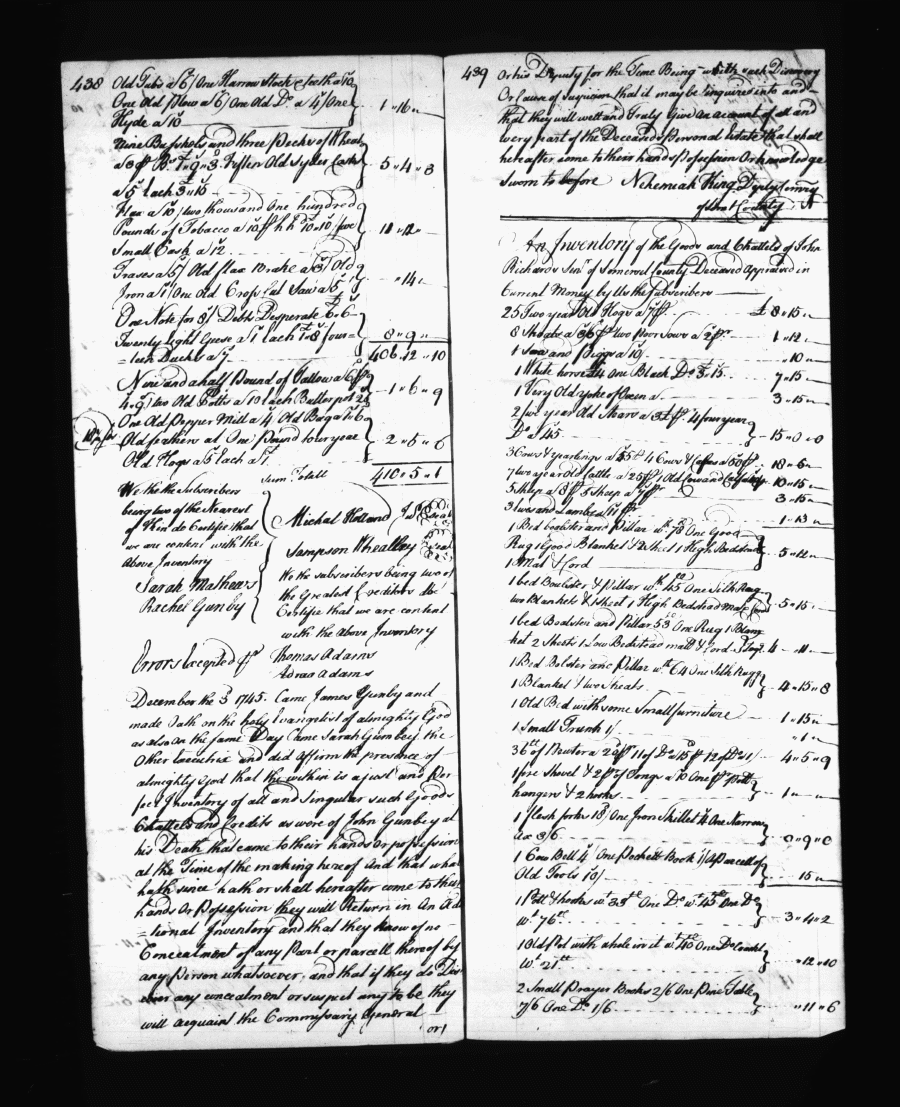 438
Old Tubs a 6/ One Harrow Stock & teeth a 10/
One Old plow a 6/ One Old Do. a 4/ One
Hyde a 10
1 „ 16 „
Nine Bushels and three Pecks of Wheat
a 3/ pr Bs. Fifteen Old Syder Casks
a 5/ Each 3„15
5 „ 4 „ 3
Flax a 10/ two thousand One hundred
Pounds of Tobacco a 10/ pr hh 10„10/ five
Small Cask a 12
11 „ 12 „
Trases a 5/ Old flax Brake a 3/ Old
Iron a 1/ One Old Cross Cut Saw a 5/
„ 14 „
One Note for 8/ Debts Desperate 6„6
Twenty Eight Geese a 1/ Each 1„8 four=
=teen Ducks a 7
8 „ 9 „
406 „ 12 „ 10
Nine and a half Pound of Tallow a 6
4„9 / two Old Potts a 10 Each Butter pot 2/
1 „ 6 „ 9
One Old Pepper Mill a 4/ Old Bag a 6
Old feathers at One pound four year
Old Hogs a 5 Each a 1
2 „ 5 „ 6
Sum Totall
410 „ 5 „ 1
We the the Subscribers
being two of the Nearest
of Kin do Certifie that
we are content with the
Above Inventory
Sarah Mathews
Rachel Gunby
Michal Holland
Sampson Wheatley
We the subscribers being two of
the Greatest Creditors do
Certifie that we are content
with the above Inventory
Errors Excepted pr
Thomas Adams
Adras Adams
December the 3 1745. Came James Gunby and
made Oath on the holy Evangelist of almighty God
as also on the same Day Came Sarah Gunbey the
Other Executrix and did affirm the presence of
almighty God that the within is a just and Per
fect Inventory of all and Singular such Goods
Chattels and Credits as were of John Gunbey at
his Death that came to their hands or possession
at the Time of the making hereof And that what
hath since hath or shall hereafter come to their
hands Or Possession they will Return in An Ad
=tional Inventory and that they know of no
Concealment of any Part or parcell thereof by
any Person whatsoever, and that if they do Dis
cover any concealment or suspect any to be they
will acquaint the Commissary General
or
439
Or his Deputy for the Time Being with such Discovery
Or Cause of suspicion that it may be enquired into and
that they will well and Truly Give an account of all and
every part of the Deceaseds Personal Estate that shall
hereafter come to their hands Possession Or knowledge
Sworn to before Nehemiah King Depty Comry
of Somt County
An Inventory of the Goods and Chattels of John
Richards Senr. of Somerset County Deceased Appraised in
Current Money by Us the Subscribers
25 Two year Old Hogs a 7/ pr £ 8 „ 15 „
8 Shoates a 3/6 pr two poor Sows a 2/ pr 1 „ 12 „
1 Sow and Piggs a 10/ „ 10 „
1 White horse One Black Do. 3„15 7 „ 15 „
1 Very Old yoke of Oxen a 3 „ 15 „
2 five year Old Steers a pr. 4 four year
Do. a 45 15 „ 0 „ 0
3 Cows & yearlings a 55 4 Cows & Calfes a 50 pr 18 „ 5 „
7 two year old Cattle a 25 pr 1 Old Cow and Calf 10 „ 15 „
5 Sheep a 8/ pr 5 Sheep a 7 pr 3 „ 15 „
3 ewes and Lambs a 11 pr 1 „ 13 „
1 Bed boolster and Pillar wt. 78 One Good
Rug 1 Good Blanket & 2 Sheet 1 High Bedstead
1 Mat & Cord 5 „ 12 „
1 bed Boulster & Pillar wt. 45 One Silk Rug
two Blankets & 1 sheet 1 High Bedstead Mat & Cord 5 „ 15 „
1 bed Boalster and Pillar 53 One Rug 1 Blan
ket 2 Sheets 1 Low Bedstead matt & Cord 4 „ 11 „
1 Bed Bolster and Pillar wt. 64 One Silk Rugg
1 Blanket & two Sheets 4 „ 15 „ 8
1 Old Bed with some Small furniture 1 „ 15 „
1 Small Trunk 1/ „ 1 „
36 of Pewter a 20 pr 11 of Do. a 15 pr 12 of Do. a 1/ 4 „ 5 „ 9
1 fire Shovel & 2 pr of Tongs a 10 One pr Pott
hangers & 2 hooks 1 „ „
1 flesh forks 18 One Iron Skillet 4 One Narrow
Ax 3/6 0 „ 9 „ 0
1 Cow Bell 4 One Pockett Book 1/ A parcell of
Old Tools 10/ 15 „
1 Pott & hooks wt 35 One Do. wt 45 One Do.
wt 76 3 „ 4 „ 2
1 Old Pot with a hole in it wt 40 One Do.
Wt. 21 „ 12 „ 10
2 Small Prayer Books 2/6 One Pine Table
7/6 One Do. 1/6 „ 11 „ 6